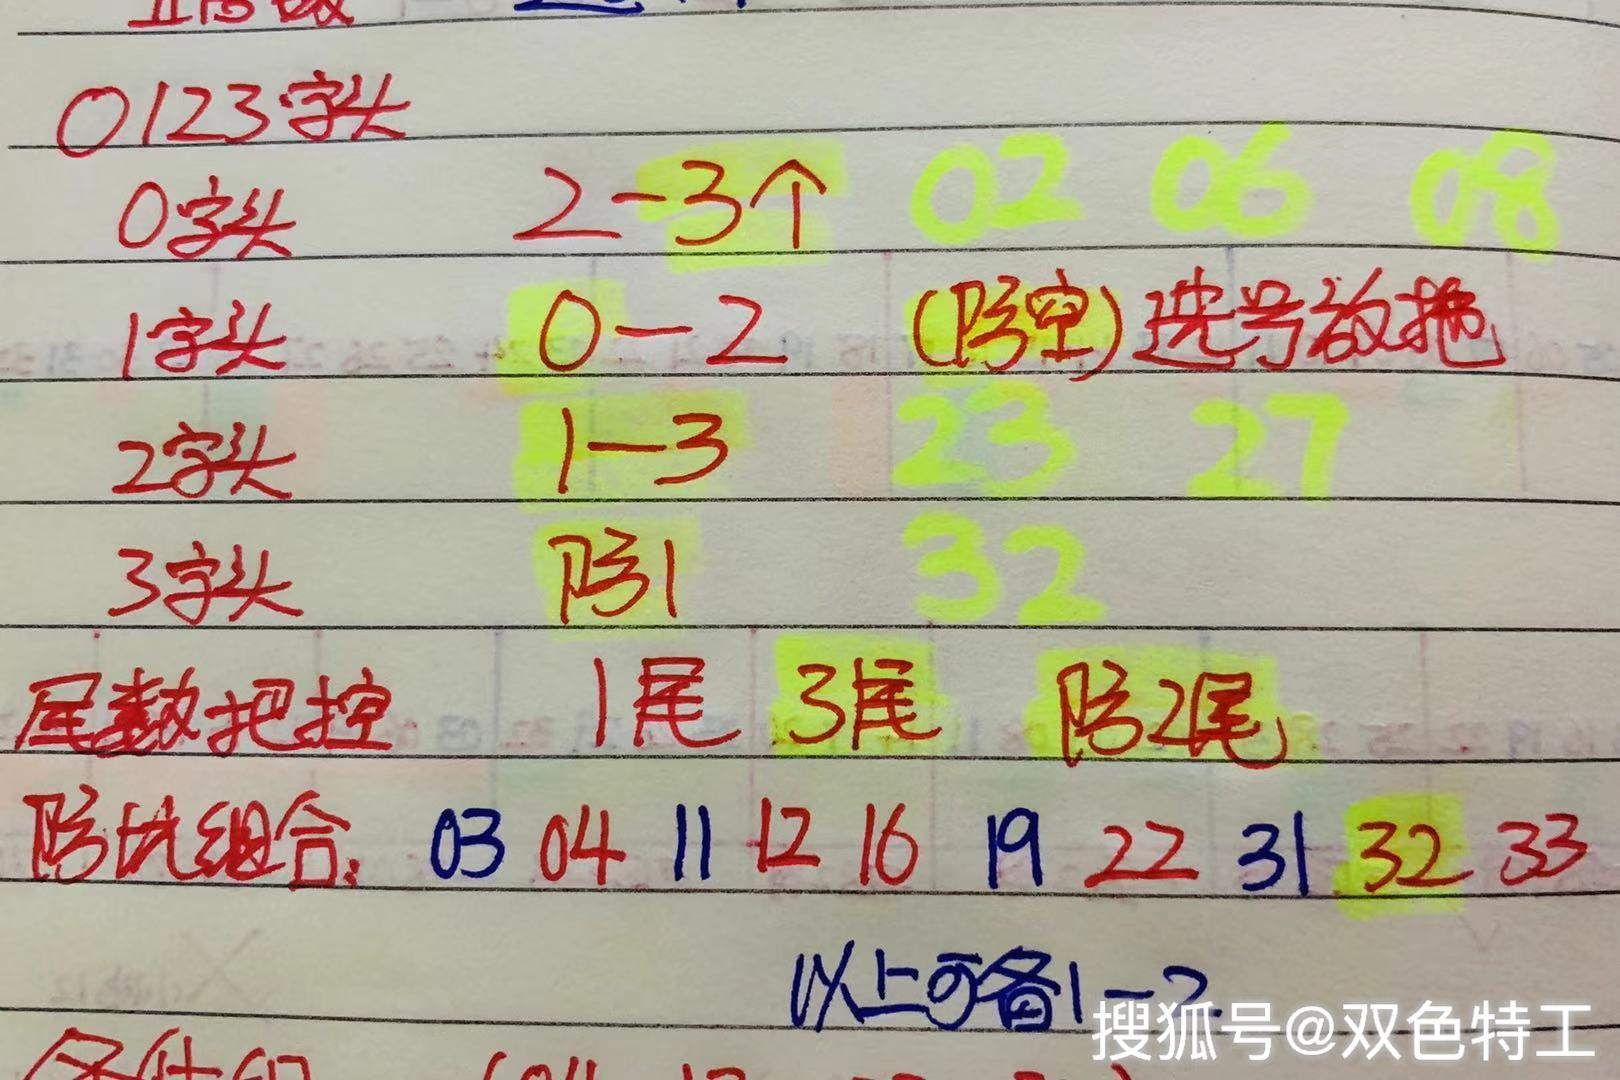 0123字头
0字头 2-3个 02 06 08
1字头 0-2 (防空)选号放掉
2字头 1-3 23 27
3字头 防1 32
尾数把控 1尾 3尾 防2尾
防坑组合: 03 04 11 12 16 19 22 31 32 33
以上可备1-2
搜狐号@双色特工